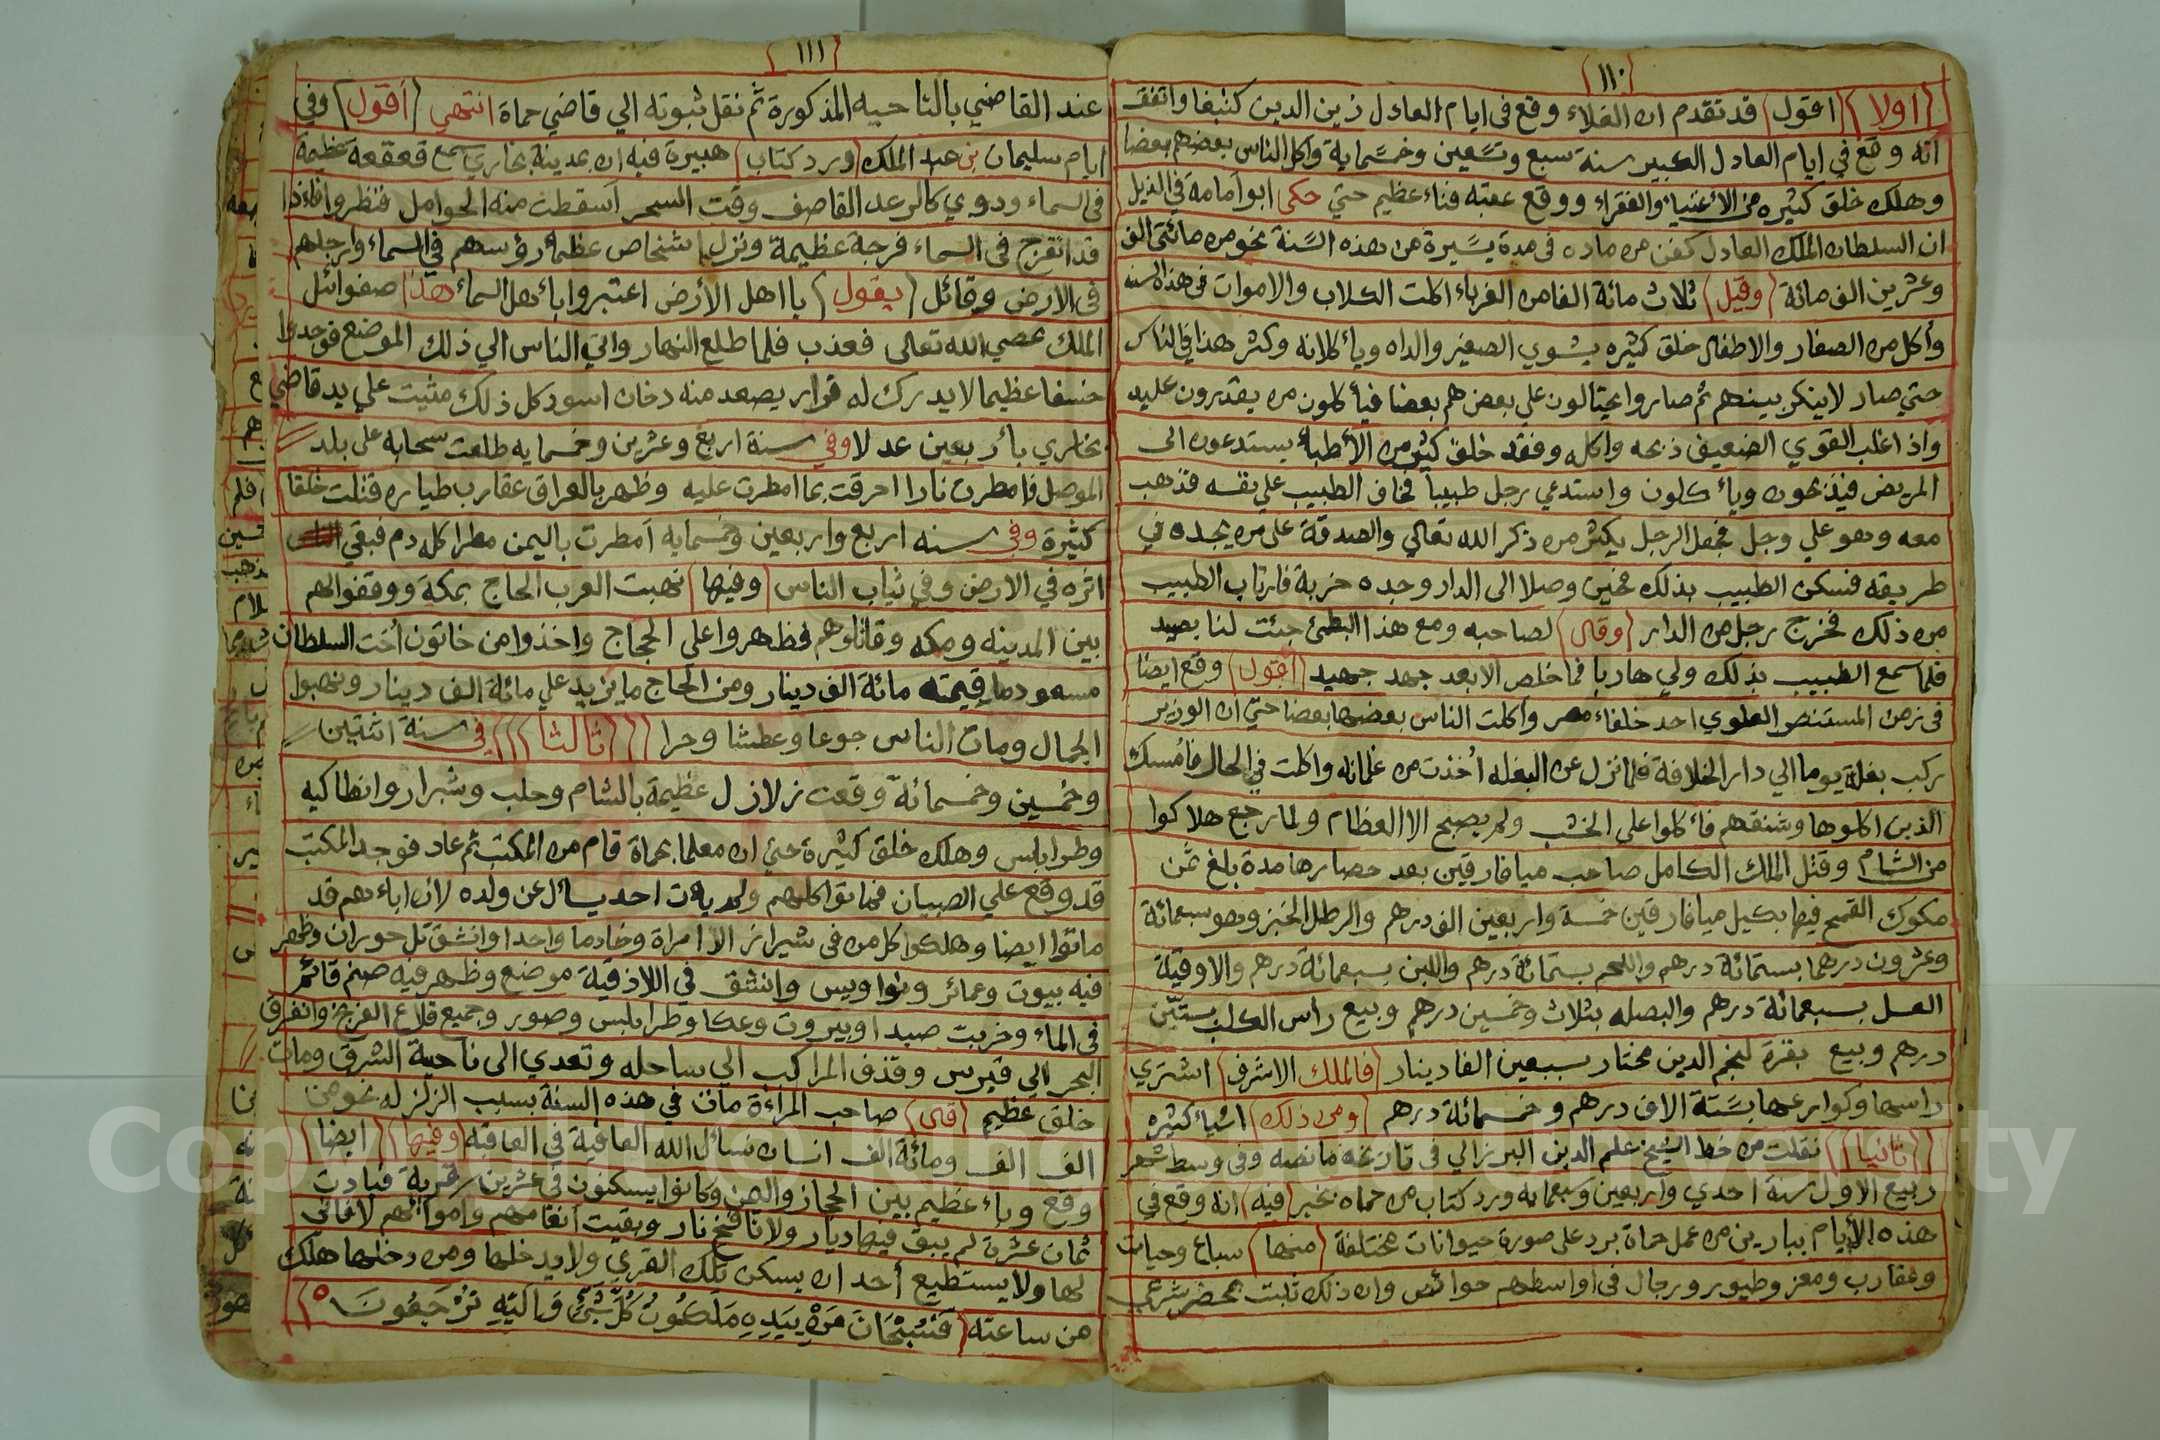 ١١٠
(اولا) (اقول) قد تقدم ان الغلاء وقع في ايام العادل زين الدين كتبغا واتفق
انه وقع في ايام العادل الكبير سنة سبع وتسعين وخسماية واكل الناس بعضهم بعضا
وهلك خلق كثيره من الأغنيا والفقراء ووقع عقبه فناء عظيم حتي حكى ابو امامة في الذيل
ان السلطان الملك العادل كفن من ماله في مدة يسيرة من هذه السنة نحو من مائتى الف
وعشرين الف مائة (وقيل) ثلاث مائة الفا من الغرباء اكلت الكلاب والاموات في هذه السنه
وأكل من الصغار والاطفال خلق كثيره يشوي الصغير والداه ويأكلانه وكثر هذا في الناس
حتي صار لاينكر بينهم ثم صاروا يحتالون علي بعض هم بعضا فيأكلون من يقدرون عليه
واذ اغلب القوي الضعيف ذبحه واكله وفقد خلق كثير من الأطباء يستدعون الى
المريض فيذبحون ويأكلون واستدعي رجل طبيبا فخاف الطبيب علي نفسه فذهب
معه وهو علي وجل فجعل الرجل يكثر من ذكر الله تعالي والصدقة على من يجده في
طريقه فسكن الطبيب بذلك فحين وصلا الى الدار وجده خربة فارتاب الطبيب
من ذلك فخرج رجل من الدار (وقال) لصاحبه ومع هذا البطئ جئت لنا بصيد
فلما سمع الطبيب بذلك ولي هاربا فما خلص الا بعد جهد جهيد (اقول) وقع ايضا
في زمن المستنصر العلوي احد خلفاء مصر وأكلت الناس بعضها بعضا حتي ان الوزير
ركب بغلة يوما الي دار الخلافة فلما نزل عن البغله أخذت من غلمانه واكلت في الحال فأمسك
الذين اكلوها وشنقهم فأكلوا على الخشب ولم يصبح الا العظام ولما رجع هلاكوا
من الشام وقتل الملك الكامل صاحب ميافارقين بعد حصارها مدة بلغ ثمن
مكوك القمح فيها بكيل ميافارقين خمسة واربعين الف درهم والرطل الخبز وهو سبعمائة
وعشرون درهما بستمائة درهم واللحم بستمائة درهم واللبن بسبعمائة درهم والاوقية
العسل بسبعمائة درهم والبصله بثلاث وخمسين درهم وبيع راس الكلب بستين
درهم وبيع بقرة لنجم الدين مختار بسبعين الفا دينار (فالملك الاشرف) اشتري
راسها وكوارعها بستة الاف درهم وخمسمائة درهم (ومن ذلك) اشياء كثيره
(ثانيا) نقلت من خط الشيخ علم الدين البرزالي في تاريخه ما نصه وفي وسط شهر
ربيع الاول سنة احدي واربعين وسبعمايه ورد كتاب من حماه يخبر (فيه) انه وقع في
هذه الأيام ببارين من عمل حماة برد على صورة حيوانات مختلفة (منها) سباع وحيات
وعقارب ومعز وطيور ورجال في اواسطهم حوائص وان ذلك ثبت بمحضر شرعي
١١١
عند القاضي بالناحيه المذكورة ثم نقل ثبوته الي قاضي حماة انتهي (أقول) وفي
ايام سليمان بن عبد الملك (ورد كتاب) هبيرة فيه ان بمدينة بخاري سمع قعقعة عظيمة
في السماء ودوي كالرعد القاصف وقت السحر أسقطت منه الحوامل فنظروا فاذا
قد انفرج في السماء فرجة عظيمة ونزل اشخاص عظماء رؤسهم في السماء وارجلهم
في الارض وقائل (يقول) يا اهل الأرض اعتبروا باهل السماء هذا صفوائل
الملك عصي الله تعالى فعذب فلما طلع النهار واتي الناس الي ذلك الموضع فوجدوا
خسفا عظيما لا يدرك له قرار يصعد منه دخان اسود كل ذلك مثبت علي يد قاضي
بخاري باربعين عدلا وفي سنة اربع وعشرين وخمسمايه طلعت سحابه على بلد
الموصل فأمطرت نارا احرقت بما امطرت عليه وظهر بالعراق عقارب طياره قتلت خلقا
كثيرة وفي سنه اربع واربعين وخمسمايه أمطرت باليمن مطرا كله دم فبقي
اثره في الارض وفي ثياب الناس (وفيها) نهبت العرب الحاج بمكة ووقفوا لهم
بين المدينه ومكه وقاتلوهم فظهروا على الحجاج واخذوا من خاتون أخت السلطان
مسعود ما قيمته مائة الف دينار ومن الحاج ما يزيد علي مائة الف دينار ونهبوا
الجمال ومات الناس جوعا وعطشا وحرا ((ثالثا)) في سنة اثنتين
وخمسين وخمسمائة وقعت زلازل عظيمة بالشام وحلب وشيزار وانطاكيه
وطرابلس وهلك خلق كثيرة حتي ان معلما بحماة قام من المكتب ثم عاد فوجد المكتب
قد وقع علي الصبيان فماتوا كلهم ولم يات احد يسأل عن ولده لان اباءهم قد
ماتوا ايضا وهلك كل من في شيراز الا امراة وخادما واحدا وانشق تل حوران وظهر
فيه بيوت وعمائر ونواويس وانشق في اللاذقية موضع وظهر فيه صنم قائم
في الماء وخربت صيدا وبيروت وعكا وطرابلس وصور وجميع قلاع الفرنج وانفرق
البحر الي قبرس وقذف المراكب الي ساحله وتعدي الى ناحية الشرق ومات
خلق عظيم (قال) صاحب المراءة مات في هذه السنة بسبب الزلزله نحو من
الف الف ومائة الف انسان نسأل الله العافية في العاقبه (وفيها) (ايضا)
وقع وباء عظيم بين الحجاز واليمن وكانوا يسكنون في عشرين قرية فبادت
ثمان عشرة لم يبق فيها ديار ولا نافخ نار وبقيت انعامهم واموالهم لا قاني
لها ولا يستطيع أحد ان يسكن تلك القري ولا يدخلها ومن دخلها هلك
من ساعته (فَسُبْحَانَ مَنْ بِيَدِهِ مَلَكُوتُ كُلِّ شَيْءٍ وَاليْهِ تُرْجَعُونَ)
Copyright © King Saud University